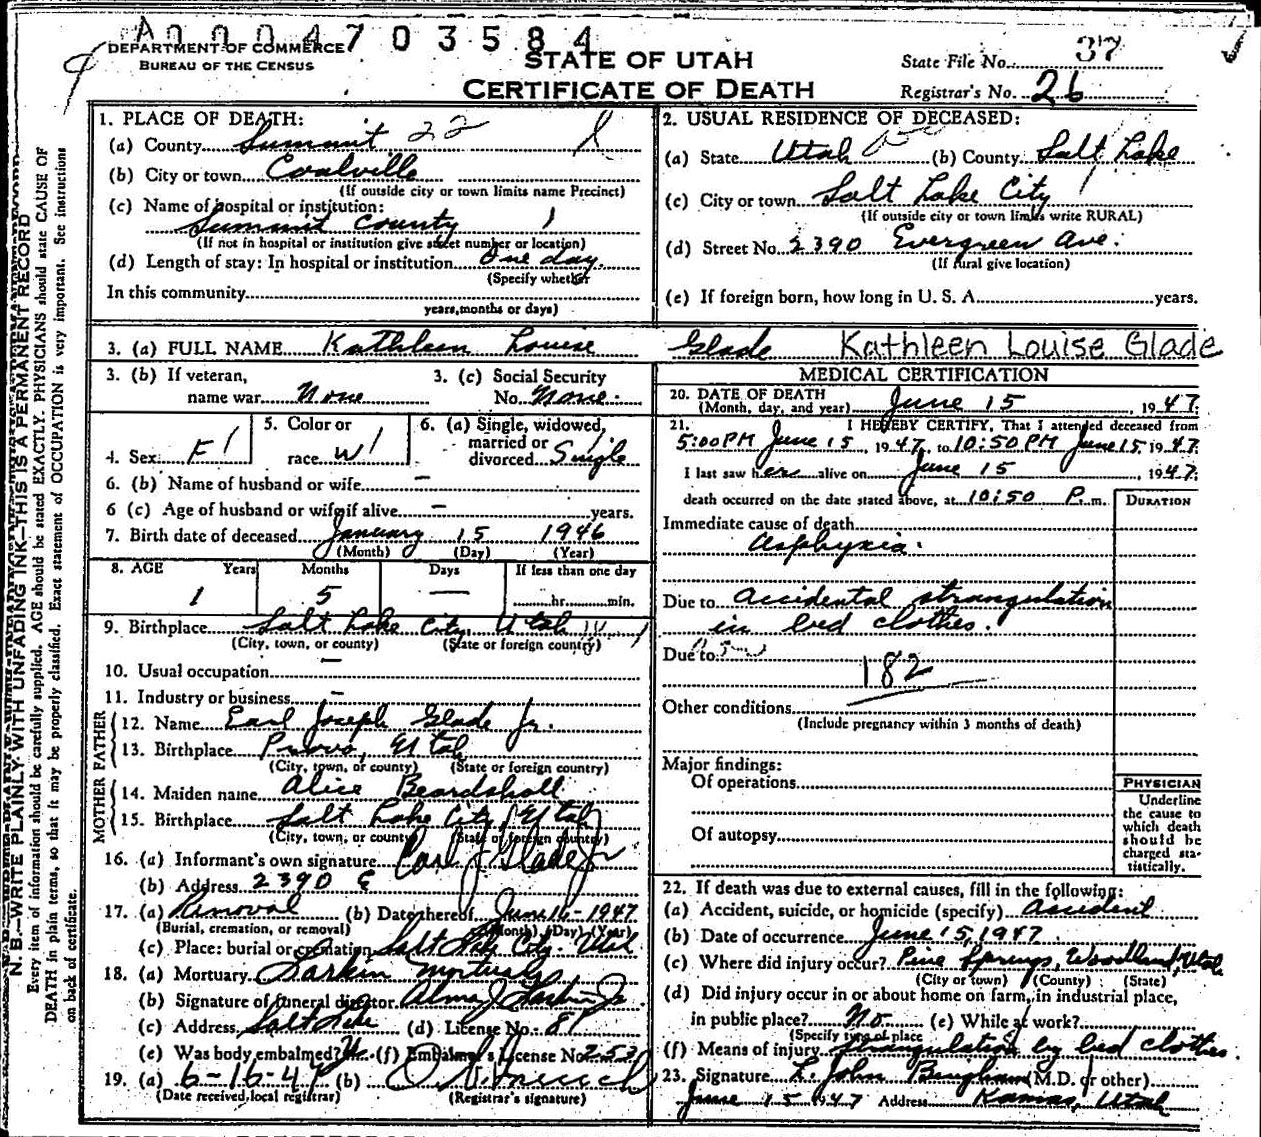 A0004703584
DEPARTMENT OF COMMERCE
BUREAU OF THE CENSUS
STATE OF UTAH
CERTIFICATE OF DEATH
State File No. 37
Registrar's No. 26
N. B.—WRITE PLAINLY WITH UNFADING INK—THIS IS A PERMANENT RECORD
Every item of information should be carefully supplied. AGE should be stated EXACTLY. PHYSICIANS should state CAUSE OF
DEATH in plain terms, so that it may be properly classified. Exact statement of OCCUPATION is very important. See instructions
on back of certificate.
1. PLACE OF DEATH:
(a) County Summit 22
(b) City or town Coalville
(If outside city or town limits name Precinct)
(c) Name of hospital or institution:
Summit County 1
(If not in hospital or institution give street number or location)
(d) Length of stay: In hospital or institution One day.
(Specify whether
In this community
years, months or days)
2. USUAL RESIDENCE OF DECEASED:
(a) State Utah (b) County Salt Lake
(c) City or town Salt Lake City
(If outside city or town limits write RURAL)
(d) Street No. 2390 Evergreen Ave.
(If rural give location)
(e) If foreign born, how long in U. S. A. years.
3. (a) FULL NAME Kathleen Louise Glade Kathleen Louise Glade
3. (b) If veteran,
name war None
3. (c) Social Security
No. None.
4. Sex F 1
5. Color or
race W 1
6. (a) Single, widowed,
married or
divorced Single
6. (b) Name of husband or wife —
6 (c) Age of husband or wife if alive — years.
7. Birth date of deceased January 15 1946
(Month) (Day) (Year)
8. AGE Years Months Days If less than one day
1 5 — hr. min.
9. Birthplace Salt Lake City, Utah
(City, town, or county) (State or foreign country)
10. Usual occupation —
11. Industry or business —
FATHER
12. Name Earl Joseph Glade Jr.
13. Birthplace Provo, Utah
(City, town, or county) (State or foreign country)
MOTHER
14. Maiden name Alice Beardshall
15. Birthplace Salt Lake City, Utah
(City, town, or county) (State or foreign country)
16. (a) Informant's own signature Earl J Glade Jr
(b) Address 2390 E
17. (a) Removal (b) Date thereof June 16-1947
(Burial, cremation, or removal) (Month) (Day) (Year)
(c) Place: burial or cremation Salt Lake City. Utah
18. (a) Mortuary Larkin Mortuary
(b) Signature of funeral director Alma J Larkin Jr
(c) Address Salt Lake (d) License No. 81
(e) Was body embalmed? (f) Embalmer's License No.
19. (a) 6-16-47 (b)
(Date received local registrar) (Registrar's signature)
MEDICAL CERTIFICATION
20. DATE OF DEATH
(Month, day, and year) June 15, 1947.
21. I HEREBY CERTIFY, That I attended deceased from
5:00PM June 15, 1947, to 10:50 PM June 15, 1947.
I last saw her alive on June 15, 1947.
death occurred on the date stated above, at 10:50 P.m.
DURATION
Immediate cause of death
Asphyxia.
Due to accidental strangulation
in bed clothes.
Due to
182
Other conditions
(Include pregnancy within 3 months of death)
Major findings:
Of operations
Of autopsy
PHYSICIAN
Underline
the cause to
which death
should be
charged sta-
tistically.
22. If death was due to external causes, fill in the following:
(a) Accident, suicide, or homicide (specify) accident
(b) Date of occurrence June 15, 1947.
(c) Where did injury occur? Pine Springs, Woodland, Utah
(City or town) (County) (State)
(d) Did injury occur in or about home on farm, in industrial place,
in public place? No (e) While at work?
(Specify type of place
(f) Means of injury Strangulation by bed clothes.
23. Signature L. John Bingham (M.D. or other)
June 15 1947 Address Kamas, Utah